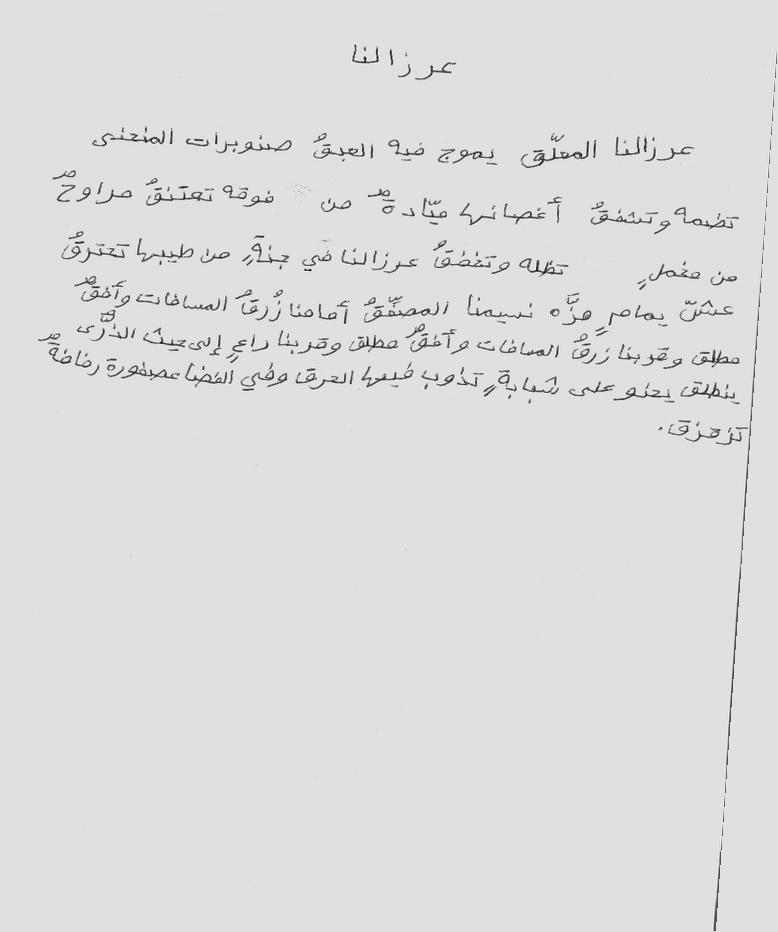 عرزالنا
عرزالنا المعلّق يموج فيه العبقُ صنوبرات المنحنى
تضمه وتشفقُ أغصانها ميّادةٌ من فوقه تعتنقُ مراوحٌ
من مخملٍ تظله وتخفقُ عرزالنا في جنةٍ من طيبها تحترقُ
عشّ يمامٍ هزَّه نسيمنا المصفِّقُ أمامنا زُرقُ المسافات وأفقٌ
مطلق وقربنا زرقُ المسافات وأفقٌ مطلق وقربنا راعٍ إلى حيث الذُّرَى
ينطلق يحنو على شبابةٍ تذوب فيها الحرق وفي الفضا عصفورة رفافةٌ
تزقزق.